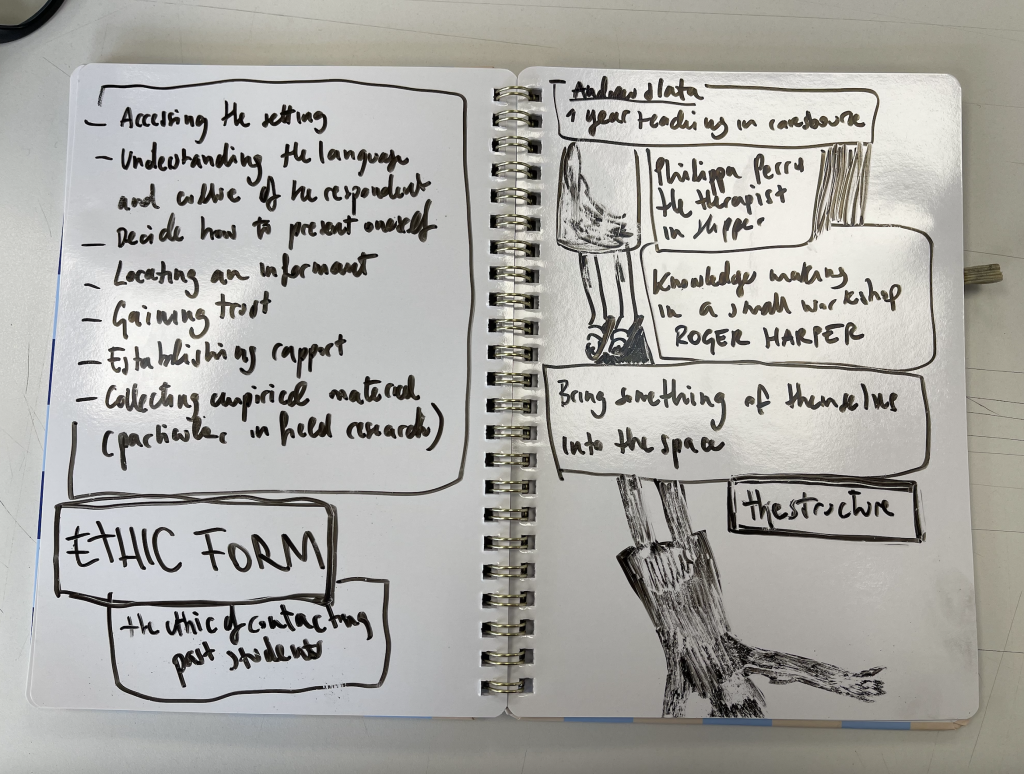 – Accessing the setting
– Understanding the language
and culture of the respondent
– Decide how to present oneself
– Locating an informant
– Gaining trust
– Establishing rapport
– Collecting empirical material
(particular in field research)
ETHIC FORM
the ethic of contacting
past students
Andrew
1 year teaching in ravesbourne
Philippa Perry
the therapist
in
Knowledge making
in a small workshop
ROGER HARPER
Bring something of themselves
into the space
the structure